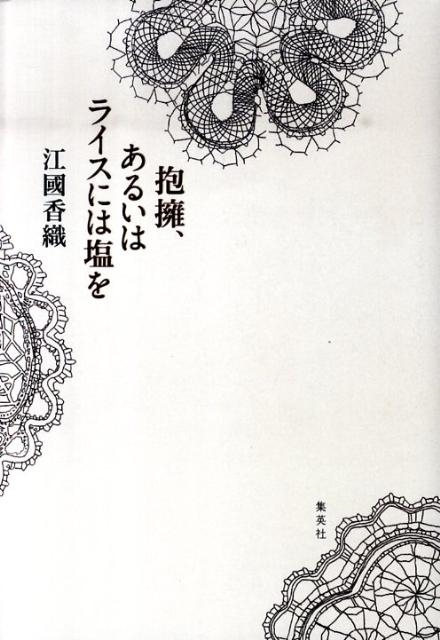 抱擁、
あるいは
ライスには塩を
江國香織
集英社